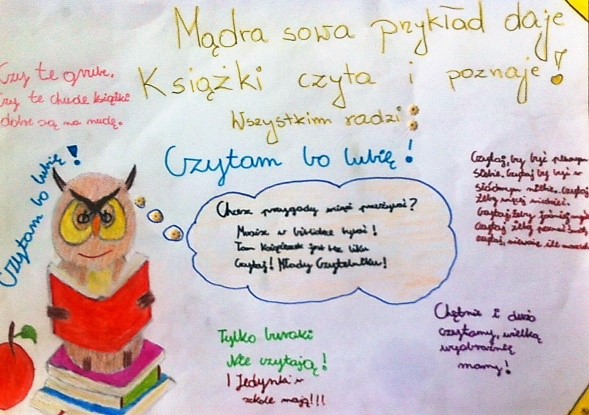 Mądra sowa przykład daje
Książki czyta i poznaje!
Wszystkim radzi:
Czytam bo lubię!
Czy te grube,
czy te chude książki
dobre są na nudę.
Czytam bo lubię!
Chcesz przygody wciąż przeżywać?
Musisz w bibliotece bywać!
Tam książeczek jest bez liku
Czytaj! Młody Czytelniku!
Czytaj, by być pewnym
siebie. Czytaj by być w
siódmym niebie. Czytaj
żeby więcej wiedzieć.
Czytaj żeby
Czytaj żeby poznać świat
czytaj, nieważne ile masz lat
Tylko buraki
Nie czytają!
I Jedynki w
szkole mają!!!
Chętnie i dużo
czytamy, wielką
wyobraźnię
mamy!